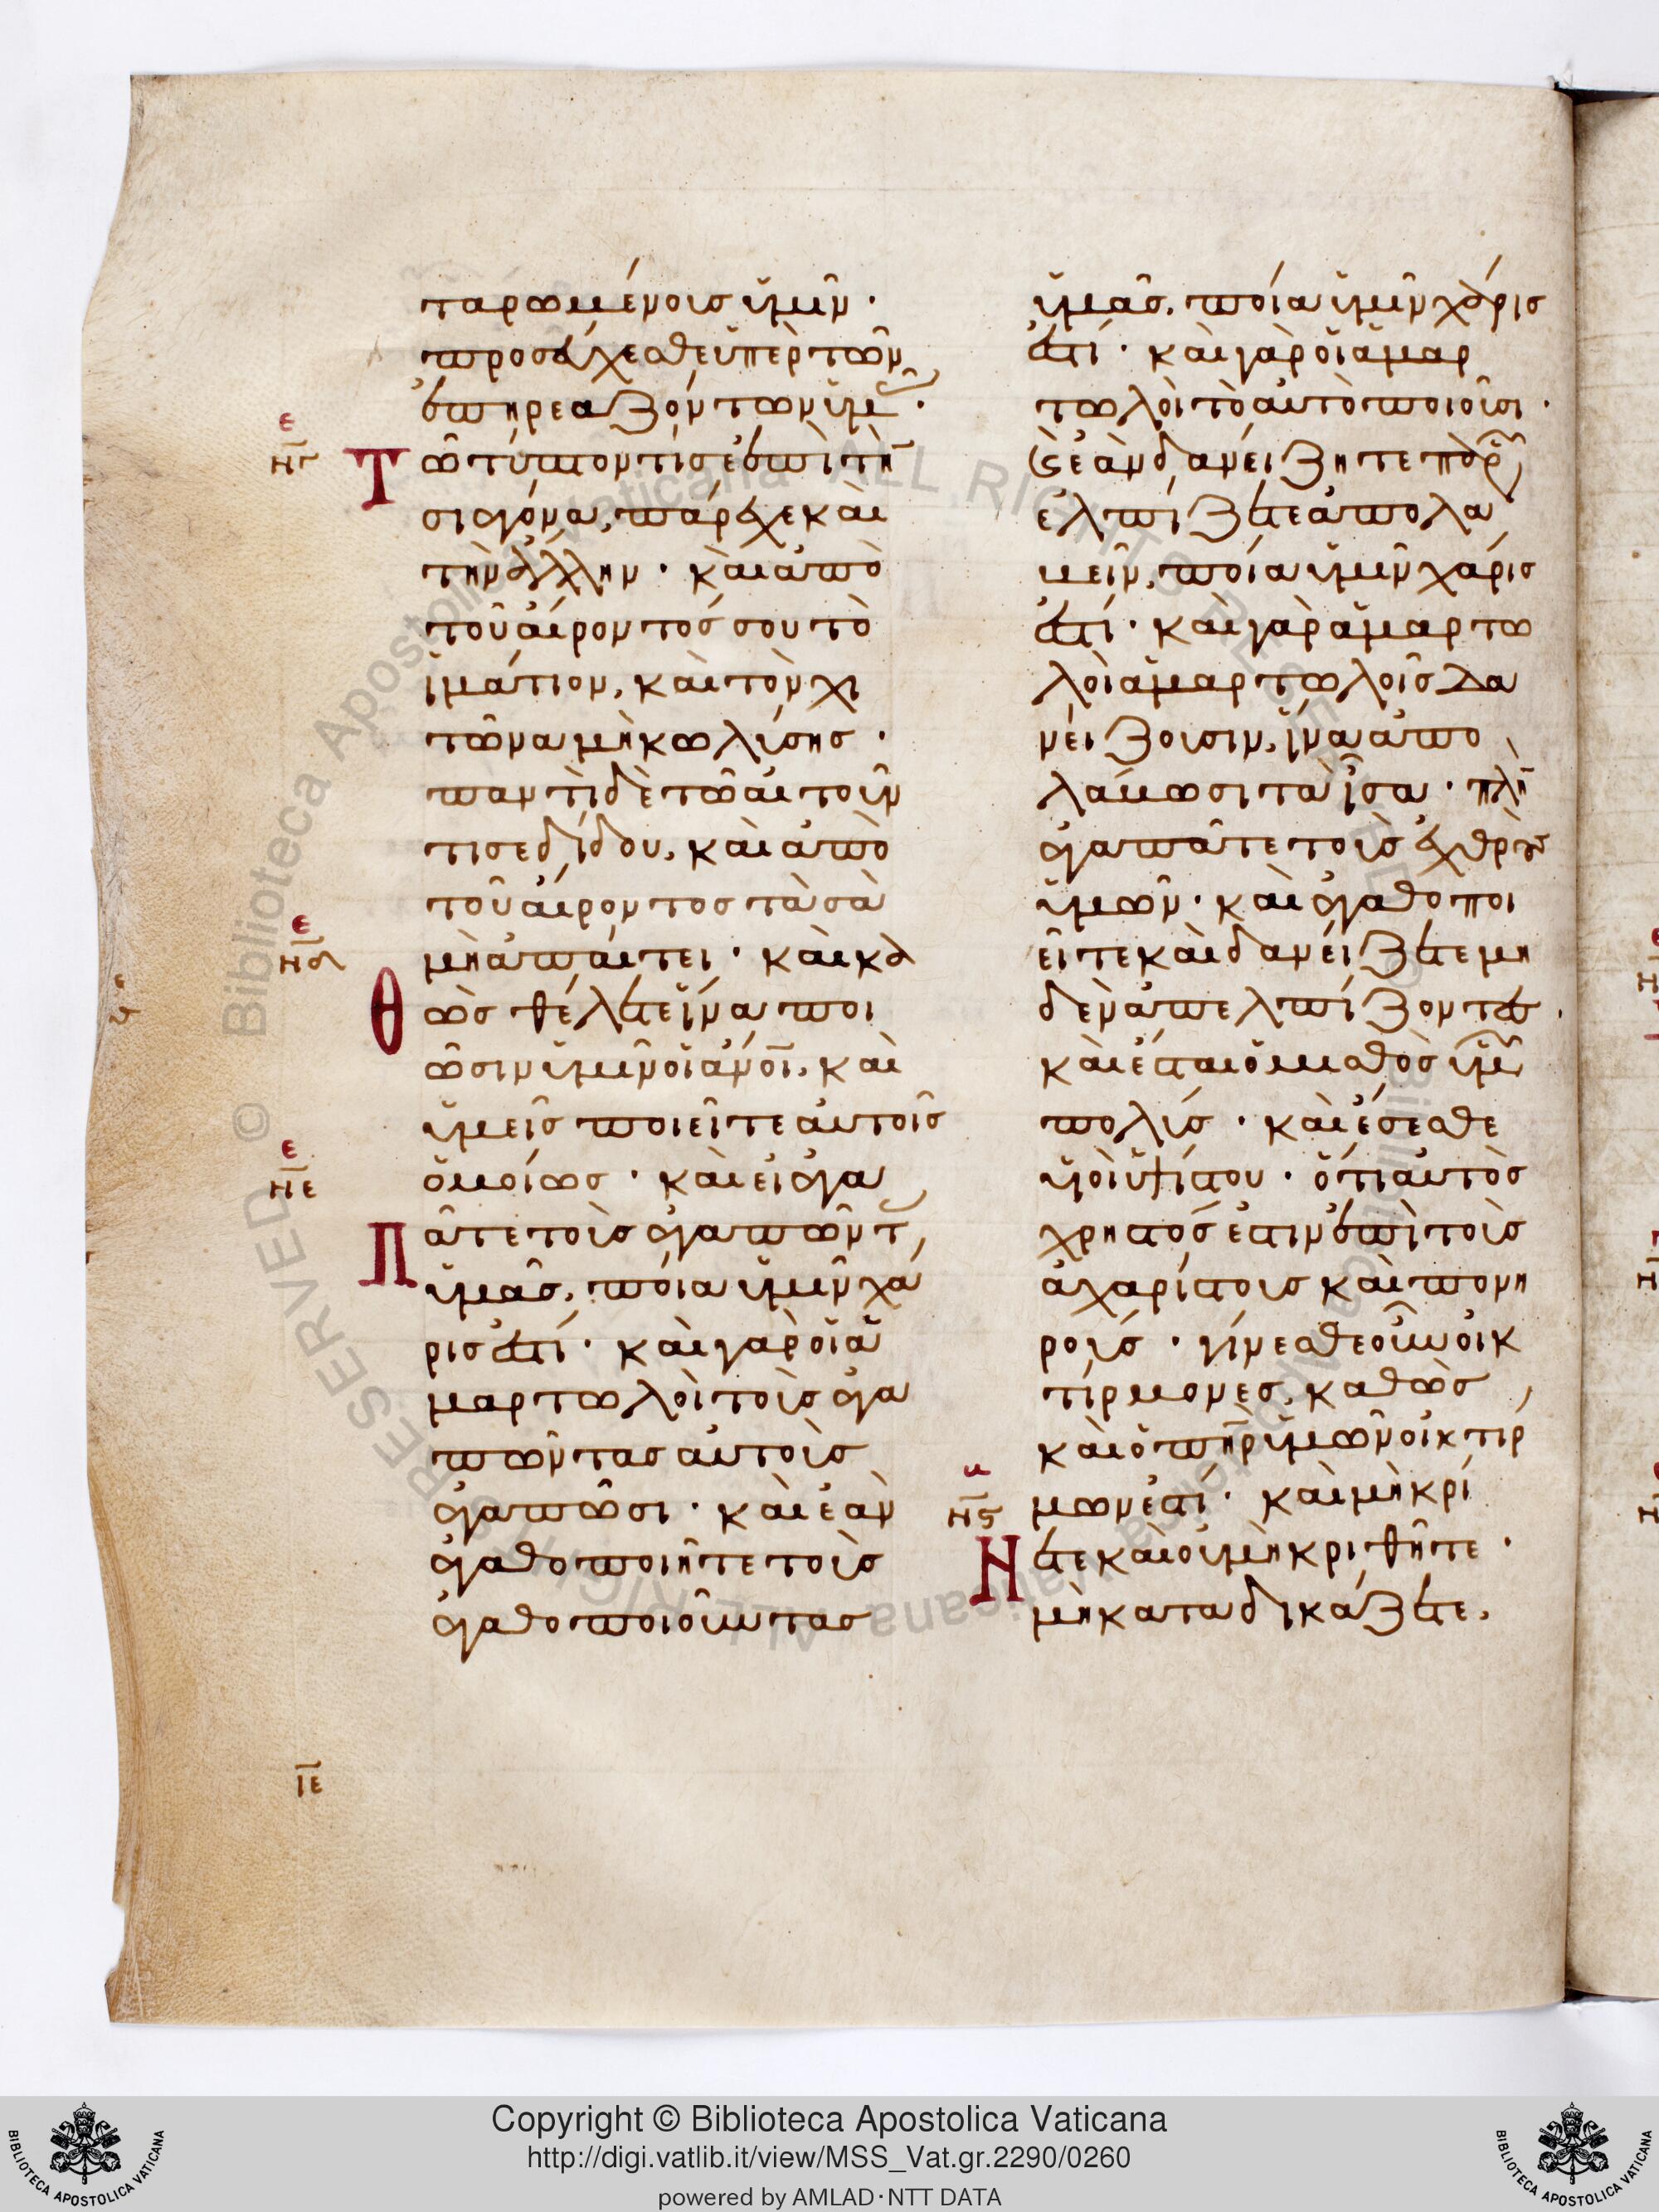 ταρωμένοις ὑμῖν·
προσεύχεσθε ὑπὲρ τῶν
ἐπηρεαζόντων ὑμᾶς·
ε
νγ
Τῶ τύπτοντί σε ἐπὶ τὴν
σιαγόνα, πάρεχε καὶ
τὴν ἄλλην· καὶ ἀπὸ
τοῦ αἴροντός σου τὸ
ἱμάτιον, καὶ τὸν χι
τῶνα μὴ κωλύσης·
παντὶ δὲ τῶ αἰτοῦν
τι σε δίδου, καὶ ἀπὸ
τοῦ αἴροντος τὰ σὰ
ε
νδ
μὴ ἀπαίτει· καὶ κα
Θὼς θέλετε ἵνα ποι
ῶσιν ὑμῖν οἱ ἄνοι, καὶ
ὑμεῖς ποιεῖτε αὐτοῖς
ε
νε
ὁμοίως· καὶ εἰ ἀγα
Πᾶτε τοὺς ἀγαπῶντας
ὑμᾶς, ποία ὑμῖν χά
ρις ἐστί· καὶ γὰρ οἱ ἁ
μαρτωλοὶ τοὺς ἀγα
πῶντας αὐτοὺς
ἀγαπῶσι· καὶ ἐὰν
ἀγαθοποιῆτε τοὺς
ἀγαθοποιοῦντας
ιε
ὑμᾶς, ποία ὑμῖν χάρις
ἐστί· καὶ γὰρ οἱ ἁμαρ
τωλοὶ τὸ αὐτὸ ποιοῦσι·
ϛ ἐὰν δανείζητε παρ' ὧν
ἐλπίζετε ἀπολα
βεῖν, ποία ὑμῖν χάρις
ἐστί· καὶ γὰρ ἁμαρτω
λοὶ ἁμαρτωλοῖς δα
νείζουσιν, ἵνα ἀπο
λάβωσι τὰ ἴσα· πλὴν
ἀγαπᾶτε τοὺς ἐχθροὺς
ὑμῶν· καὶ ἀγαθοποι
εῖτε καὶ δανείζετε μη
δὲν ἀπελπίζοντες·
καὶ ἔσται ὁ μισθὸς ὑμῶν
πολύς· καὶ ἔσεσθε
υἱοὶ ὑψίστου· ὅτι αὐτὸς
χρηστός ἐστιν ἐπὶ τοὺς
ἀχαρίστους καὶ πονη
ρούς· γίνεσθε οὖν οἰκ
τίρμονες, καθὼς
καὶ ὁ πηρ ὑμῶν οἰκτίρ
νϛ
μων ἐστί· καὶ μὴ κρί
Νετε καὶ οὐ μὴ κριθῆτε·
μὴ καταδικάζετε,
BIBLIOTECA APOSTOLICA VATICANA
Copyright © Biblioteca Apostolica Vaticana
http://digi.vatlib.it/view/MSS_Vat.gr.2290/0260
powered by AMLAD·NTT DATA
BIBLIOTECA APOSTOLICA VATICANA